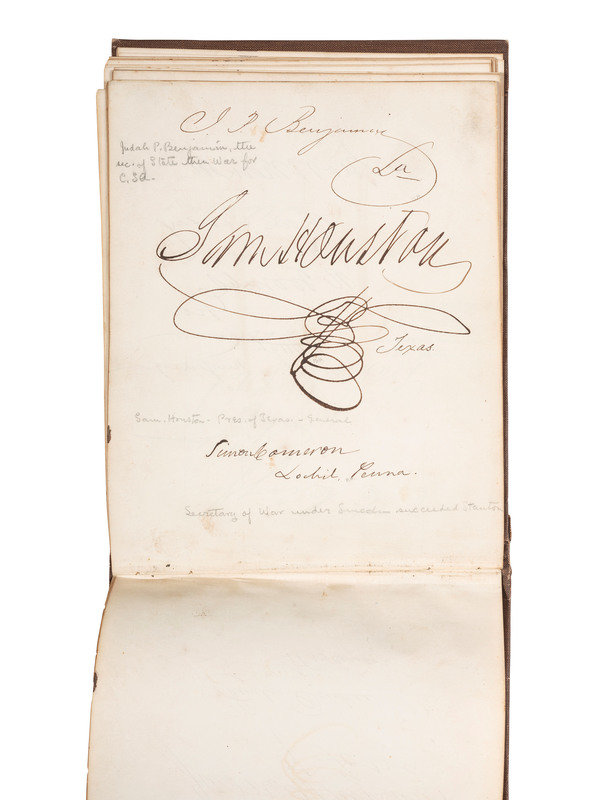 J P Benjamin
La
Judah P. Benjamin, the
sec. of State then War for
C.SA.
Sam Houston
Texas.
Sam. Houston - Pres. of Texas. - General
Simon Cameron
Lochiel, Penna.
Secretary of War under Lincoln succeeded Stanton